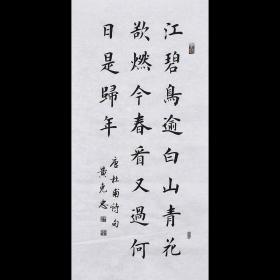 江碧鳥逾白山青花
欲燃今春看又過何
日是歸年
唐杜甫詩句
黄克忠